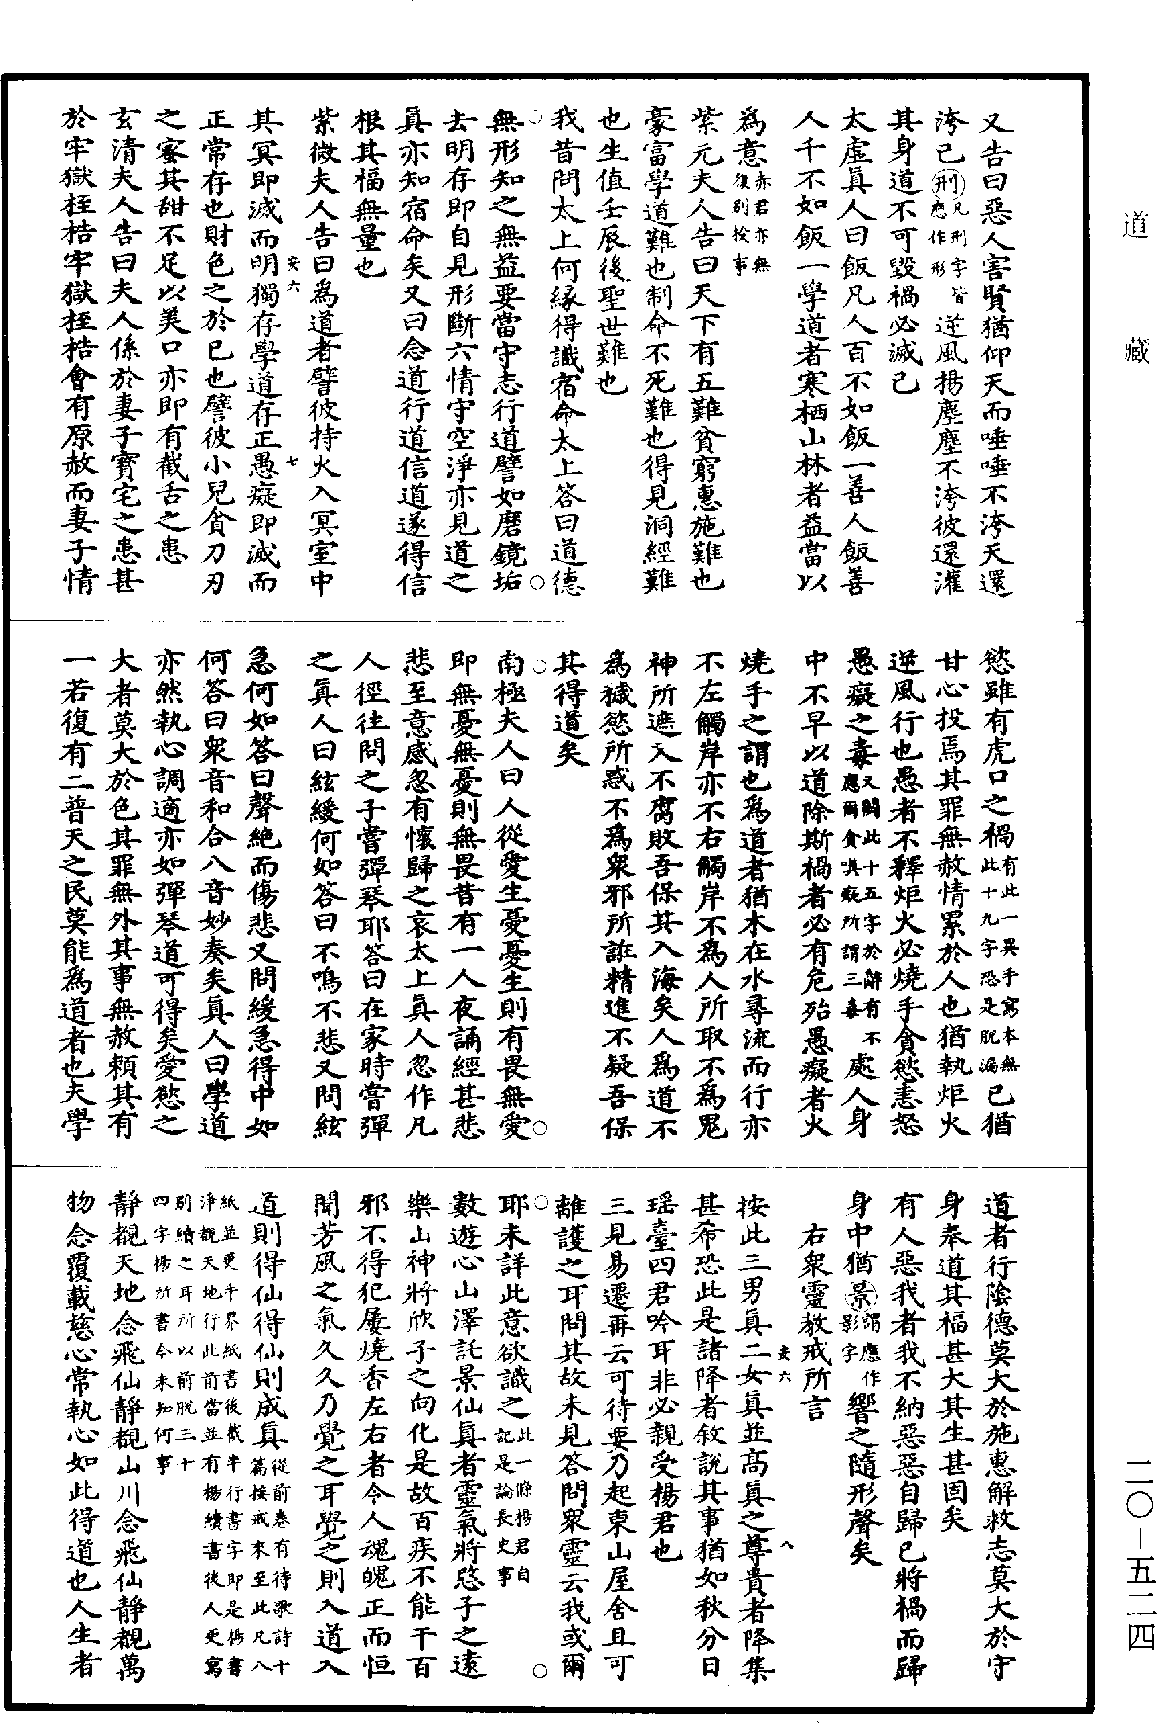 道藏
又告曰惡人害賢猶仰天而唾唾不洿天還
洿己刑凡刑字皆應作形逆風揚塵塵不洿彼還灌
其身道不可毀禍必滅己
太虛真人曰飯凡人百不如飯一善人飯善
人千不如飯一學道者寒栖山林者益當以
為意亦君亦無復別授事
紫元夫人告曰天下有五難貧窮惠施難也
豪富學道難也制命不死難也得見洞經難
也生值壬辰後聖世難也
我昔問太上何緣得識宿命太上答曰道德
無形知之無益要當守志行道譬如磨鏡垢
去明存即自見形斷六情守空淨亦見道之
真亦知宿命矣又曰念道行道信道遂得信
根其福無量也
紫微夫人告曰為道者譬彼持火入冥室中
其冥即滅而明獨存學道存正愚癡即滅而
安六 七
正常存也財色之於己也譬彼小兒貪刀刃
之蜜其甜不足以美口亦即有截舌之患
玄清夫人告曰夫人係於妻子寶宅之患甚
於牢獄桎梏牢獄桎梏會有原赦而妻子情
慾雖有虎口之禍有此一異手寫本無此十九字恐是脫漏己猶
甘心投焉其罪無赦情累於人也猶執炬火
逆風行也愚者不釋炬火必燒手貪慾恚怒
愚癡之毒又闕此十五字於辭有不應爾貪嗔癡所謂三毒處人身
中不早以道除斯禍者必有危殆愚癡者火
燒手之謂也為道者猶木在水尋流而行亦
不左觸岸亦不右觸岸不為人所取不為鬼
神所遮又不腐敗吾保其入海矣人為道不
為穢慾所惑不為眾邪所誑精進不疑吾保
其得道矣
南極夫人曰人從愛生憂憂生則有畏無愛
即無憂無憂則無畏昔有一人夜誦經甚悲
悲至意感忽有懷歸之哀太上真人忽作凡
人徑往問之子嘗彈琴耶答曰在家時嘗彈
之真人曰絃緩何如答曰不鳴不悲又問絃
急何如答曰聲絕而傷悲又問緩急得中如
何答曰眾音和合八音妙奏矣真人曰學道
亦然執心調適亦如彈琴道可得矣愛慾之
大者莫大於色其罪無外其事無赦賴其有
一若復有二普天之民莫能為道者也夫學
道者行陰德莫大於施惠解救志莫大於守
身奉道其福甚大其生甚固矣
有人惡我者我不納惡惡自歸己將禍而歸
身中猶景謂應作影字響之隨形聲矣
右眾靈教戒所言
安六 八
按此三男真二女真並高真之尊貴者降集
甚希恐此是諸降者敘說其事猶如秋分日
瑶臺四君吟耳非必親受楊君也
三見易遷再云可待要乃起東山屋舍且可
離護之耳問其故未見答問眾靈云我或爾
耶未詳此意欲識之此一條楊君自記是論長史事
數遊心山澤託景仙真者靈氣將愍子之遠
樂山神將欣子之向化是故百疾不能干百
邪不得犯屢燒香左右者令人魂魄正而恒
聞芳風之氣久久乃覺之耳覺之則入道入
道則得仙得仙則成真從前卷有待歌詩十篇接戒來至此凡八紙並更手界紙書後截半行書字即是楊書淨觀天地行此前當並有楊續書後人更寫別續之耳所以前脫三十四字楊所書今未知何事
靜觀天地念飛仙靜觀山川念飛仙靜觀萬
物念覆載慈心常執心如此得道也人生者
二〇—五二四